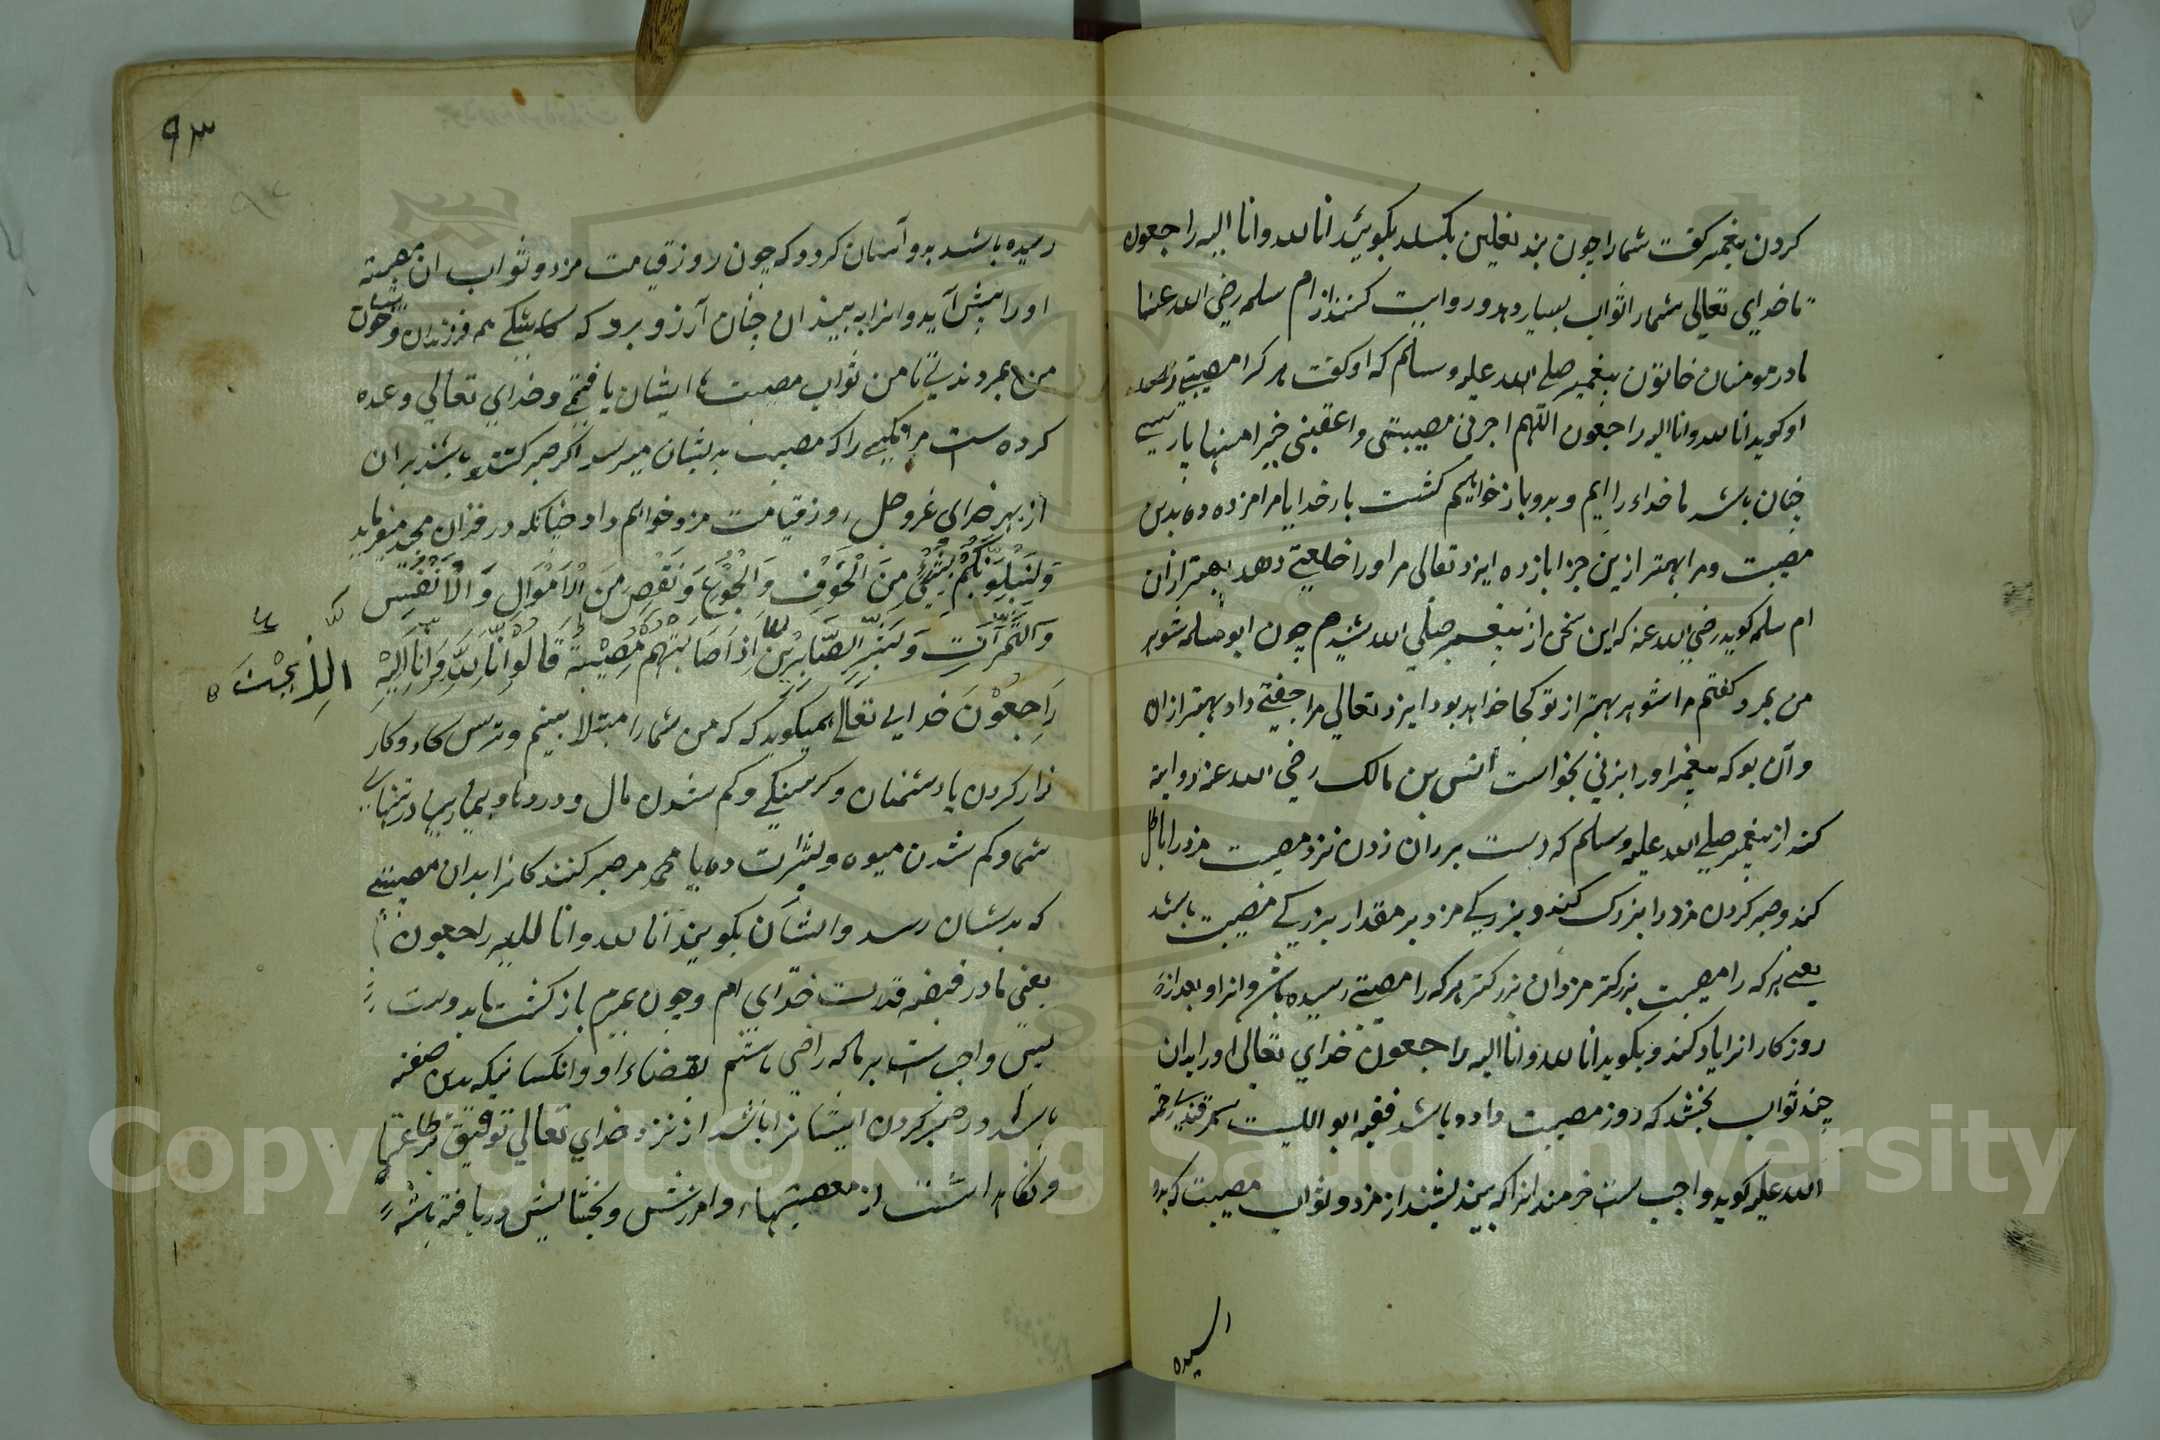 کردن پیغمبر گفت شما را چون بند نعلین بکسلد بکوئید انا لله وانا الیه راجعون
تا خدای تعالی شما را ثواب بسیار دهد و روایت کنند از ام سلمه رضی الله عنها
مادر مومنان خاتون پیغمبر صلی الله علیه وسلم که او کفت هر کرا مصیبتی رسد
او کوید انا لله وانا الیه راجعون اللهم اجرنی مصیبتی واعقبنی خیرا منها پارسی
چنان باشد ما خداء را ایم و بدو باز خواهیم کشت بار خدایا مرا مزده ده بدین
مصیبت و مرا بهتر ازین جزا باز ده ایزد تعالی مر او را خلعتی دهد بهتر از آن
ام سلمه کوید رضی الله عنه که این سخن از پیغمبر صلی الله شنیدم چون ابو سلمه شوهر
من بمرد کفتم مرا شوهر بهتر از تو کجا خواهد بود ایزد تعالی مرا جفتی داد بهتر از ان
و آن بو که پیغمبر او را بزنی بخواست انس بن مالک رضی الله عنه روایة
کند از پیغمبر صلی الله علیه وسلم که دست بر ران زدن نزد مصیبت مزد را باطل
کند و صبر کردن مزد را بزرک کند و بزرکی مزد بر مقدار بزرکی مصیبت باشد
یعنی هر که را مصیبت بزرکتر مزد آن بزرکتر هر که را مصیبتی رسیده باشد و انرا و بعد از
روزکار انرا یاد کند و بکوید انا لله وانا الیه راجعون خدای تعالی او را بدان
چند ثواب بخشد که روز مصیبت داده باشد فقیه ابو اللیث سمرقندی رحمة
الله علیه کوید واجب ست خرمند انرا که بیندیشند از مزد و ثواب مصیبت که بدو
رسیده
۹۳
رسیده باشد بدو آسان کردد که چون روز قیامت مزد و ثواب ان مصیبة
او را پیش آید و انرا ببیند ان چنان آرزو برد که کاشکی همه فرزندان و خویشان
من بمردندی تا من ثواب مصیبت ایشان یافتمی و خدای تعالی وعده
کرده ست مر انکسی را که مصیبت بدیشان میرسد اکر صبر کننده باشند بران
از بهر خدای عز وجل روز قیامت مزد خواهم داد چنانکه در قران مجید میفرماید
وَلَنَبْلُوَنَّكُمْ بِشَيْءٍ مِنَ الْخَوْفِ وَالْجُوْعِ وَنَقْصٍ مِنَ الْاَمْوَالِ وَالْاَنْفُسِ
وَالثَّمَرَاتِ وَبَشِّرِ الصَّابِرِيْنَ اِذَا اَصَابَتْهُمْ مُصِيْبَةٌ قَالُوْا اِنَّا لِلّٰهِ وَاِنَّا اِلَيْهِ
الذِيْنَ
رَاجِعُوْنَ خدایی تعالی میکوید که من شما را مبتلا بینم و ترس کار و کار
زار کردن با دشمنان و کرسنکی و کم شدن مال و دردها و بیماریها در تنهای
شما و کم شدن میوه و بشارت ده یا محمد مر صبر کنندکانرا بدان مصیبتی
که بدیشان رسد و ایشان بکویند انا لله وانا الیه راجعون
یعنی ما در قبضه قدرت خدای ام و چون بمیرم باز کشت ما بدوست
پس واجب ست بر ما که راضی باشیم بقضاء او و انکسانیکه بدین صفة
باشد در صبر کردن ایشانرا باشد از نزد خدای تعالی توفیق بر طاعتها
و نکاه داشتن از معصیتها و امرزش و بخشایش دریافته باشد